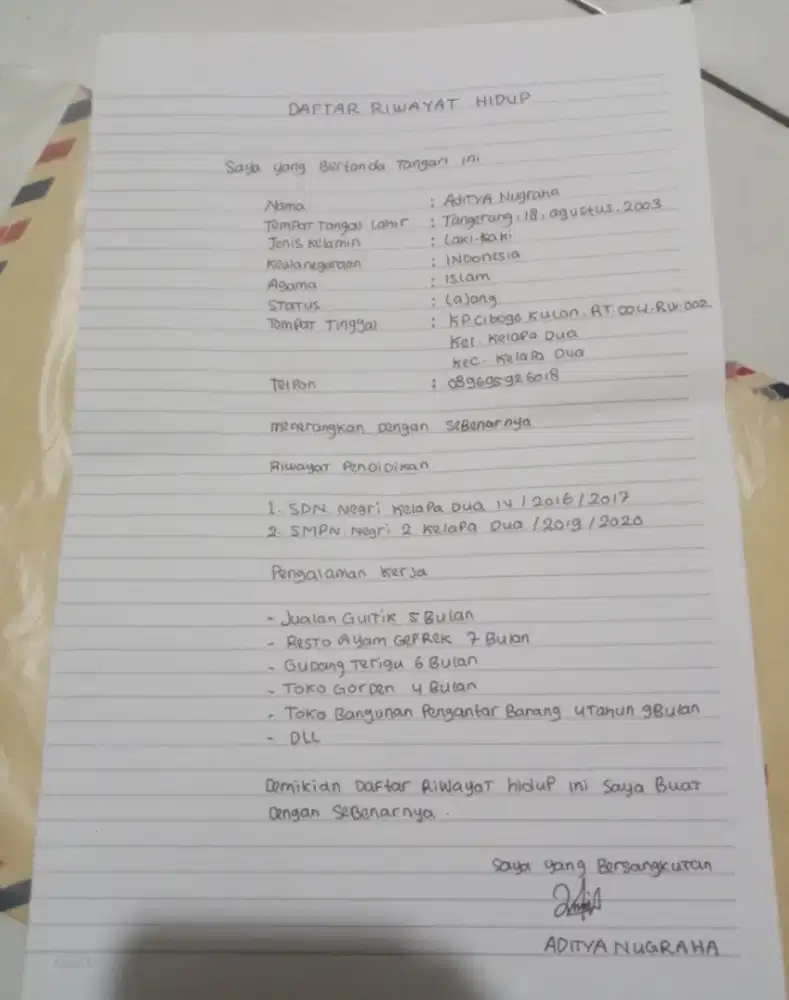 DAFTAR RIWAYAT HIDUP
Saya yang Bertanda Tangan ini
Nama : ADITYA Nugraha
Tempat Tanggal Lahir : Tangerang, 18, agustus, 2003
Jenis Kelamin : Laki-Laki
Kewarnegaraan : INDonesia
Agama : Islam
STaTus : Lajang
Tempat Tinggal : KP Cibogo Kulon. RT. 004. RW. 002
Kel. Kelapa Dua
Kec. Kelapa Dua
Telpon : 089695926018
menerangkan Dengan SeBenarnya
Riwayat PenDiDikan
1. SDN Negri Kelapa Dua IV / 2016 / 2017
2. SMPN Negri 2 Kelapa Dua / 2019 / 2020
Pengalaman Kerja
- Jualan Gultik 5 Bulan
- Resto Ayam GePRek 7 Bulan
- Gudang Terigu 6 Bulan
- Toko Gorden 4 Bulan
- Toko Bangunan Pengantar Barang 4 Tahun 9 Bulan
- DLL
Demikian Daftar RiWayaT hidup ini Saya Buat
Dengan SeBenarnya.
Saya yang Bersangkutan
ADITYA NUGRAHA